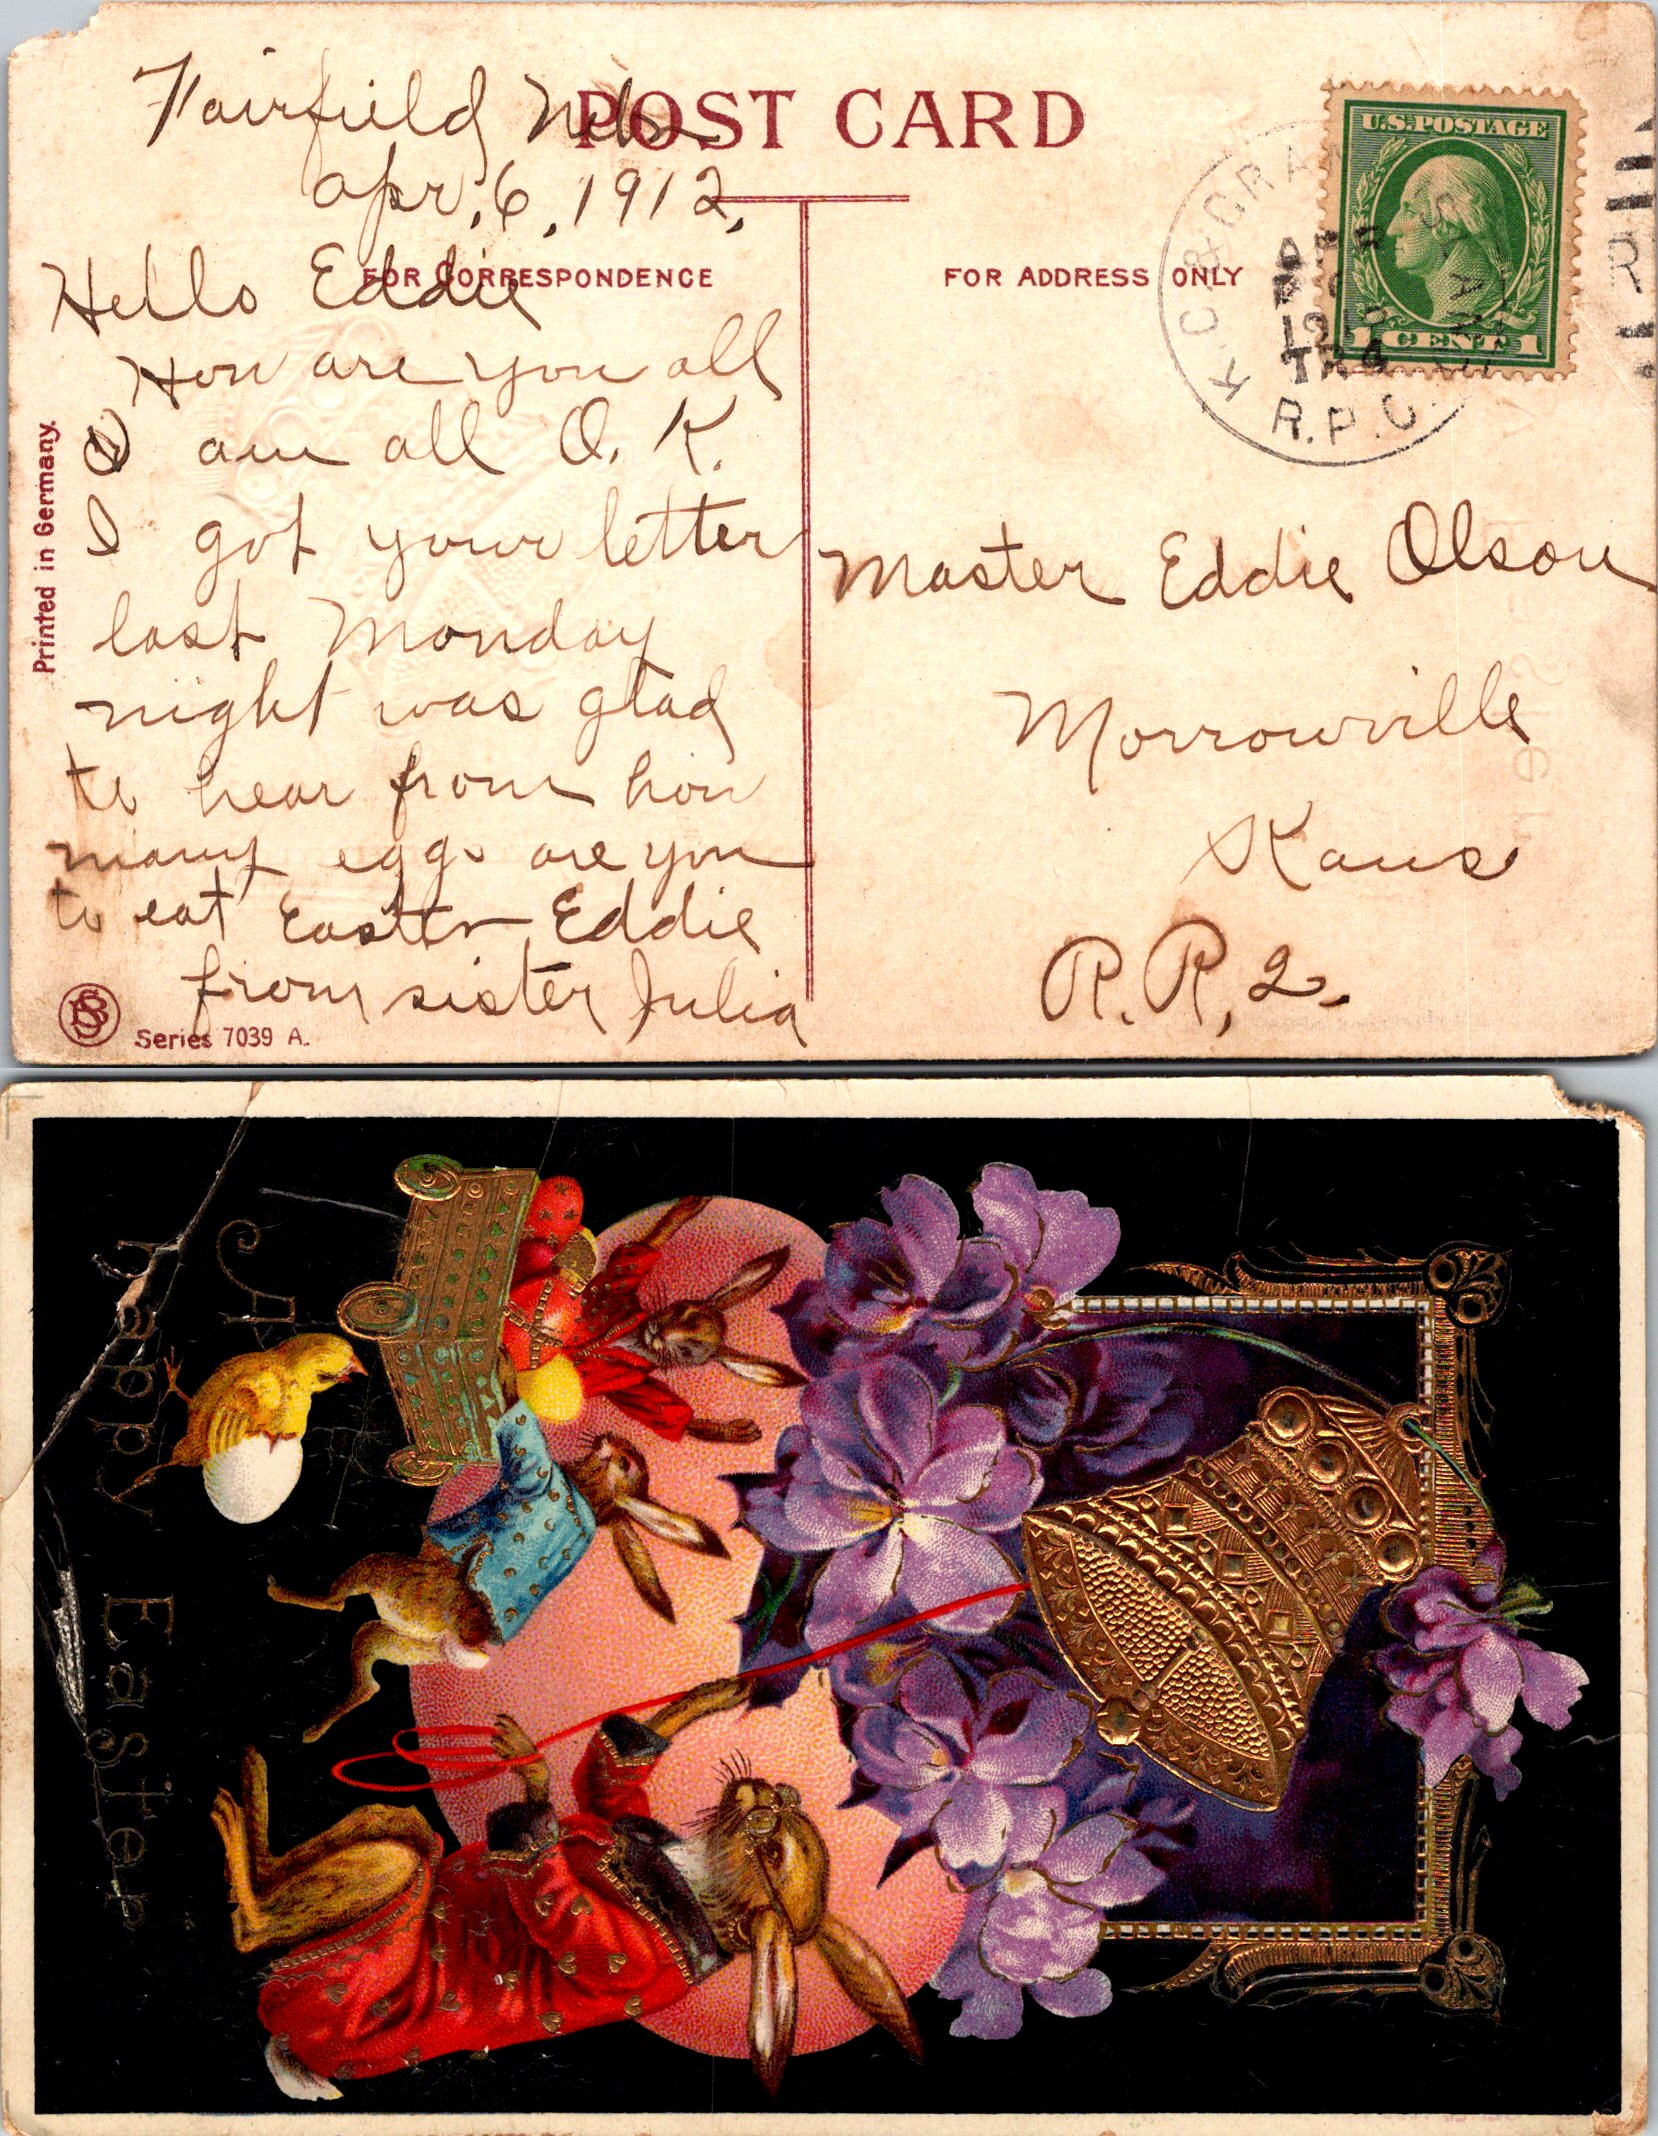 POST CARD
Fairfield Neb
Apr. 6, 1912,
FOR CORRESPONDENCE
Hello Eddie
How are you all
I am all O. K.
I got your letter
last Monday
night was glad
to hear from how
many eggs are you
to eat Easter Eddie
from sister Julia
Printed in Germany.
Series 7039 A.
FOR ADDRESS ONLY
U.S. POSTAGE
1 CENT 1
K.C. & GRAND ISLAND
TR 4
R.P.O.
R
Master Eddie Olson
Morrowville
Kans
R. R, 2.
A
happy Easter